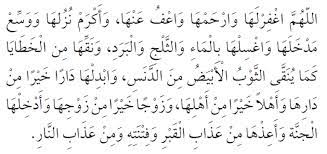 اللَّهُمَّ اغْفِرْلَهَا وَارْحَمْهَا وَاعْفُ عَنْهَا، وَأَكْرِمْ نُزُلَهَا وَوَسِّعْ
مَدْخَلَهَا وَاغْسِلْهَا بِالْمَاءِ وَالثَّلْجِ وَالْبَرَدِ، وَنَقِّهَا مِنَ الْخَطَايَا
كَمَا يُنَقَّى الثَّوْبُ الْأَبْيَضُ مِنَ الدَّنَسِ، وَابْدِلْهَا دَارًا خَيْرًا مِنْ
دَارِهَا وَأَهْلاً خَيْرًا مِنْ أَهْلِهَا، وَزَوْجًا خَيْرًا مِنْ زَوْجِهَا وَأَدْخِلْهَا
الْجَنَّةَ وَأَعِذْهَا مِنْ عَذَابِ الْقَبْرِ وَفِتْنَتِهِ وَمِنْ عَذَابِ النَّارِ.